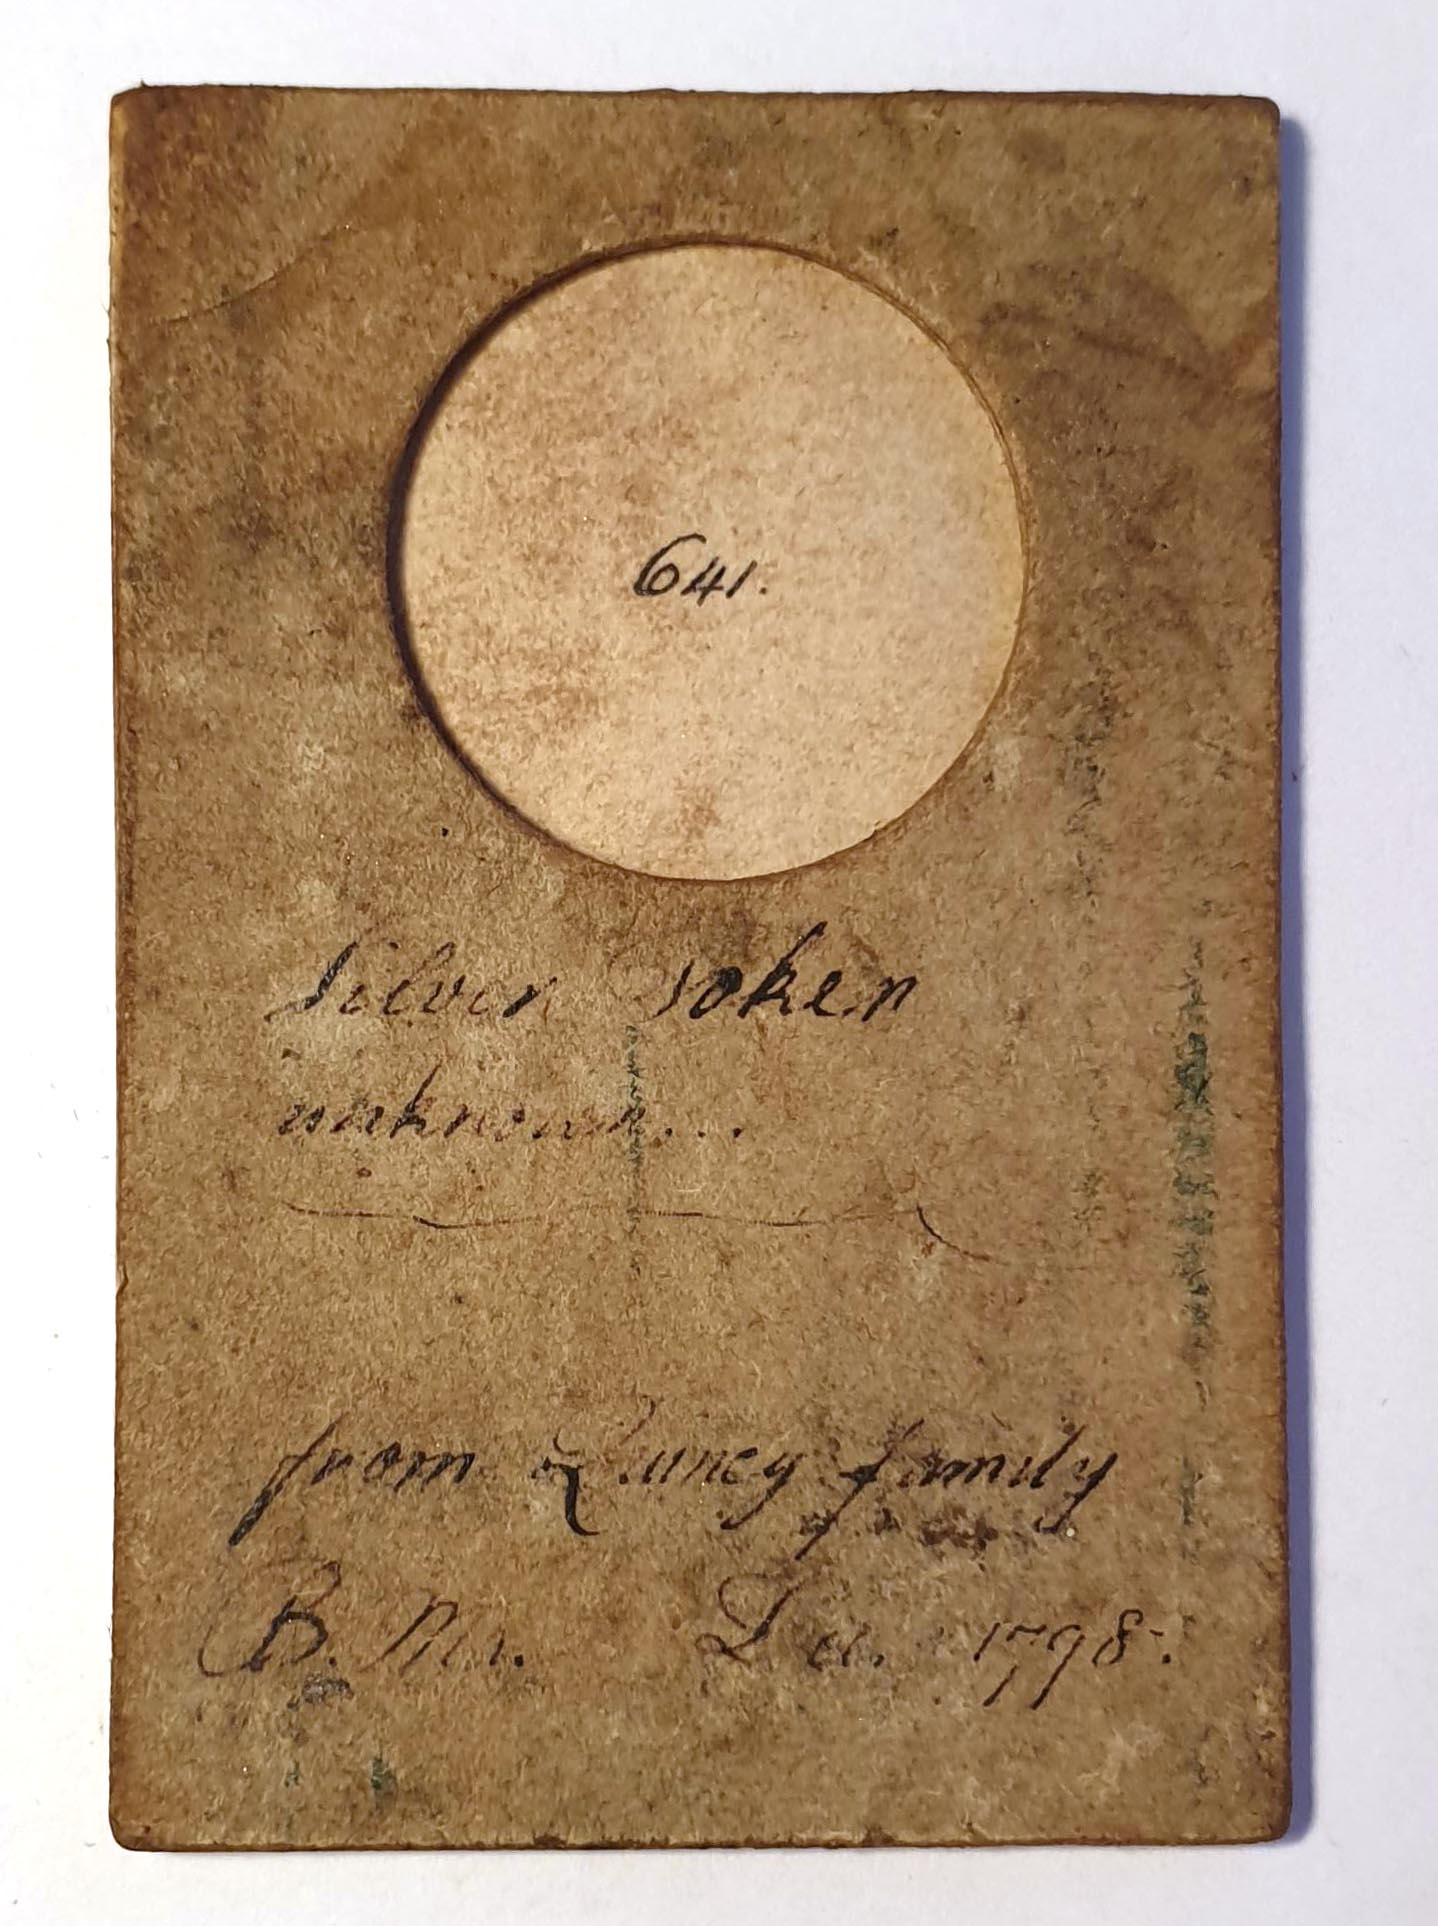 641.
Silver Token
unknown...
from Quincy family
B. Ma. 1798.